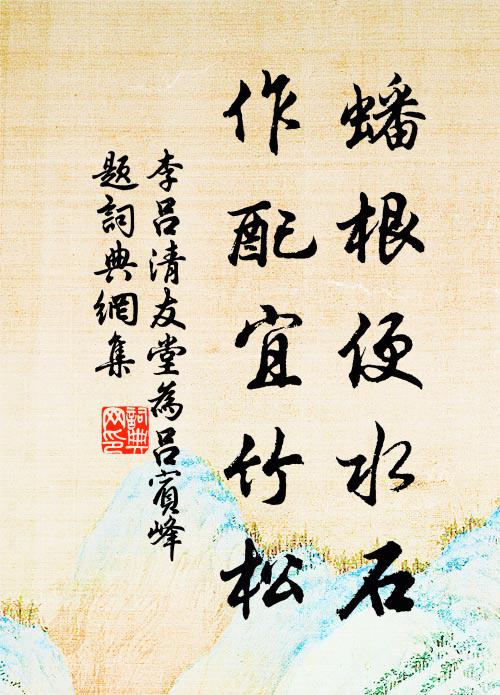 蟠根便水石
作配宜竹松
李呂清友堂為呂賓峰
題詞典網集
詞典网印